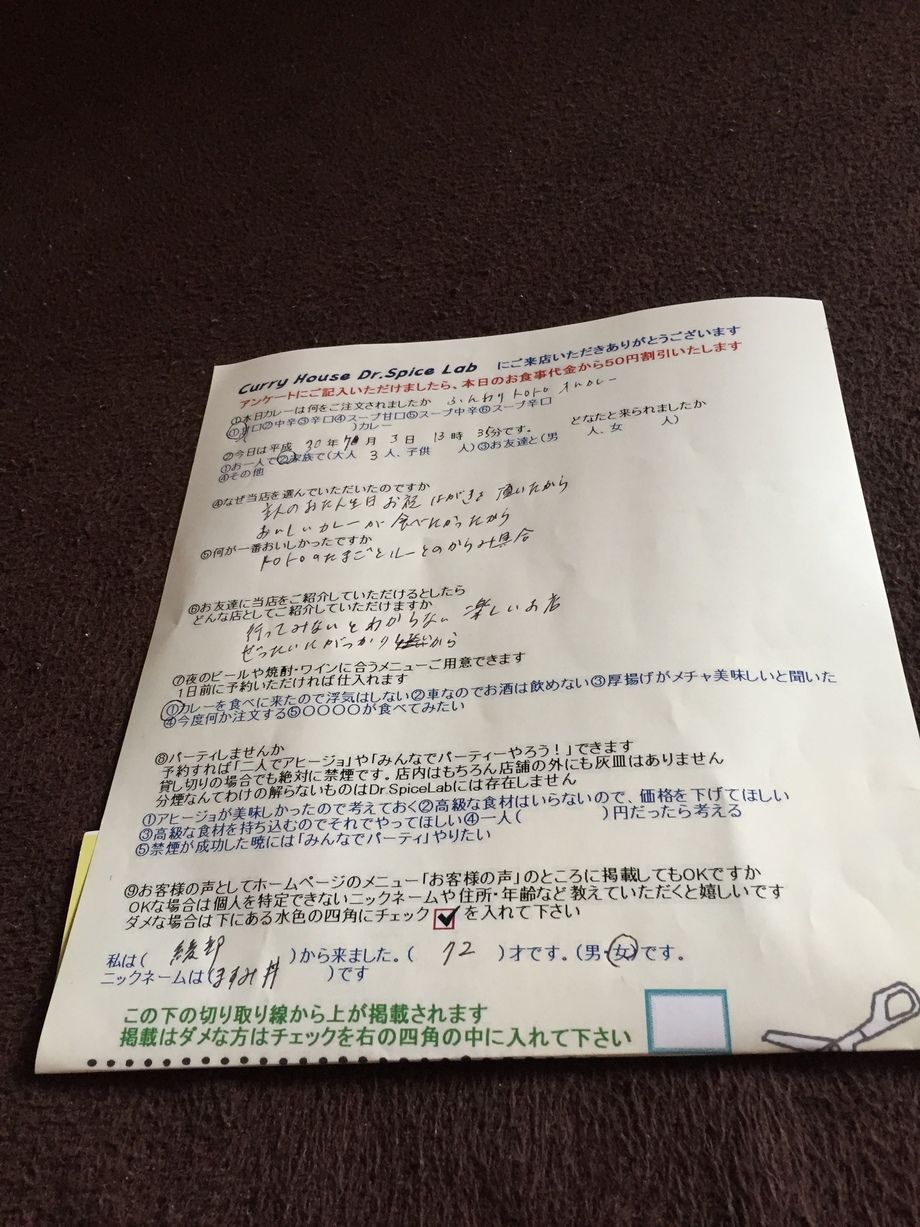 Curry House Dr.Spice Lab にご来店いただきありがとうございます
アンケートにご記入いただけましたら、本日のお食事代金から50円割引いたします
①本日カレーは何をご注文されましたか ふんわりトロトロ オムカレー
①甘口②中辛③辛口④スープ甘口⑤スープ中辛⑥スープ辛口
( )カレー
②今日は平成 30年 月 3日 13時 35分です。 どなたと来られましたか
①お一人で②家族で(大人 3人、子供 人)③お友達と(男 人、女 人)
④その他
④なぜ当店を選んでいただいたのですか
主人のおたん生日お祝 はがきを 頂いたから
おいしいカレーが 食べたかったから
⑤何が一番おいしかったですか
トロトロのたまごとルーとのからみ具合
⑥お友達に当店をご紹介していただけるとしたら
どんな店としてご紹介していただけますか
行ってみないとわからない 楽しいお店
ぜったいにがっかり から
⑦夜のビールや焼酎・ワインに合うメニューご用意できます
1日前に予約いただければ仕入れます
①カレーを食べに来たので浮気はしない②車なのでお酒は飲めない③厚揚げがメチャ美味しいと聞いた
④今度何か注文する⑤〇〇〇〇が食べてみたい
⑧パーティしませんか
予約すれば「二人でアヒージョ」や「みんなでパーティーやろう！」できます
貸し切りの場合でも絶対に禁煙です。店内はもちろん店舗の外にも灰皿はありません
分煙なんてわけの解らないものはDr.SpiceLabには存在しません
①アヒージョが美味しかったので考えておく②高級な食材はいらないので、価格を下げてほしい
③高級な食材を持ち込むのでそれでやってほしい④一人( )円だったら考える
⑤禁煙が成功した暁には「みんなでパーティ」やりたい
⑨お客様の声としてホームページのメニュー「お客様の声」のところに掲載してもOKですか
OKな場合は個人を特定できないニックネームや住所・年齢など教えていただくと嬉しいです
ダメな場合は下にある水色の四角にチェック✔を入れて下さい
私は( 綾部 )から来ました。( 72 )才です。(男・女)です。
ニックネームは(ますみ丼 )です
この下の切り取り線から上が掲載されます
掲載はダメな方はチェックを右の四角の中に入れて下さい